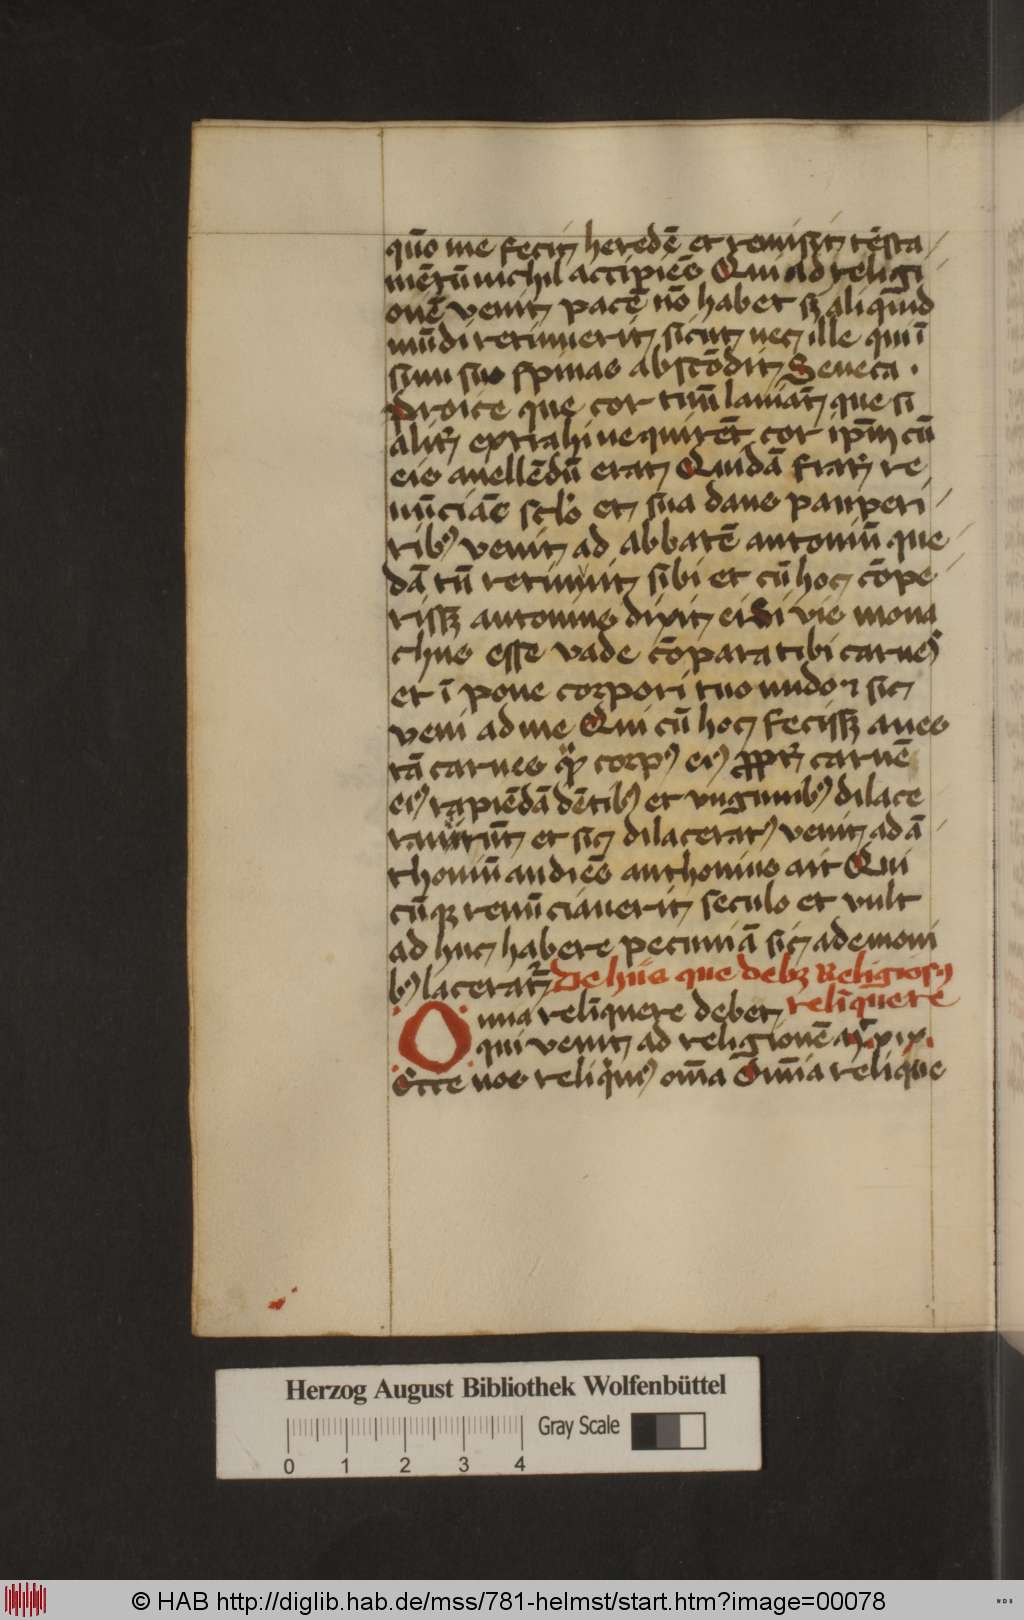 quō me fecit heredē et remisit tēsta
mētū nichil accipiēs Qui ad religi
onē venit pacē nō habet sꝫ aliquid
mūdi retinuerit sicut nec ille qui ī
sinu suo spinas abscōdit Seneca .
Proice que cor tuū laniāt que si
alit̄ extrahi nequirēt cor ipm̄ cū
eis auellēdū erat Quidā frat̄ re
nūciās sclo et sua dans pauperi
ribꝰ venit ad abbatē antoniū que
dā tn̄ retinuit sibi et cū hoc cōpe
rissꝫ antonius dixit ei Si vis mona
chus esse vade cōpara tibi carnes
et ī pone corpori tuo nudo ⁊ sic
veni ad me Qui cū hoc fecissꝫ aues
tā carnes qͣꝫ corpꝰ eiꝰ ꝓpt̄ carnē
eiꝰ rapiēdā dētibꝰ et vnguibꝰ dilace
rauerūt et sic dilceratꝰ venit ad ā
thoniū audiēs anthonius ait Qui
cūqꝫ renūciauerit seculo et vult
ad huc habere pecuniā sic a demoni
bꝰ lacerat̄ De hiis que debꝫ Religiosꝰ
relīquere
Omnia relīquere debet
qui venit ad religionē xix.
Ecce nos reliqͥmꝰ om̄a Om̄ia reliquͥe
Herzog August Bibliothek Wolfenbüttel
Gray Scale
0 1 2 3 4
© HAB http://diglib.hab.de/mss/781-helmst/start.htm?image=00078